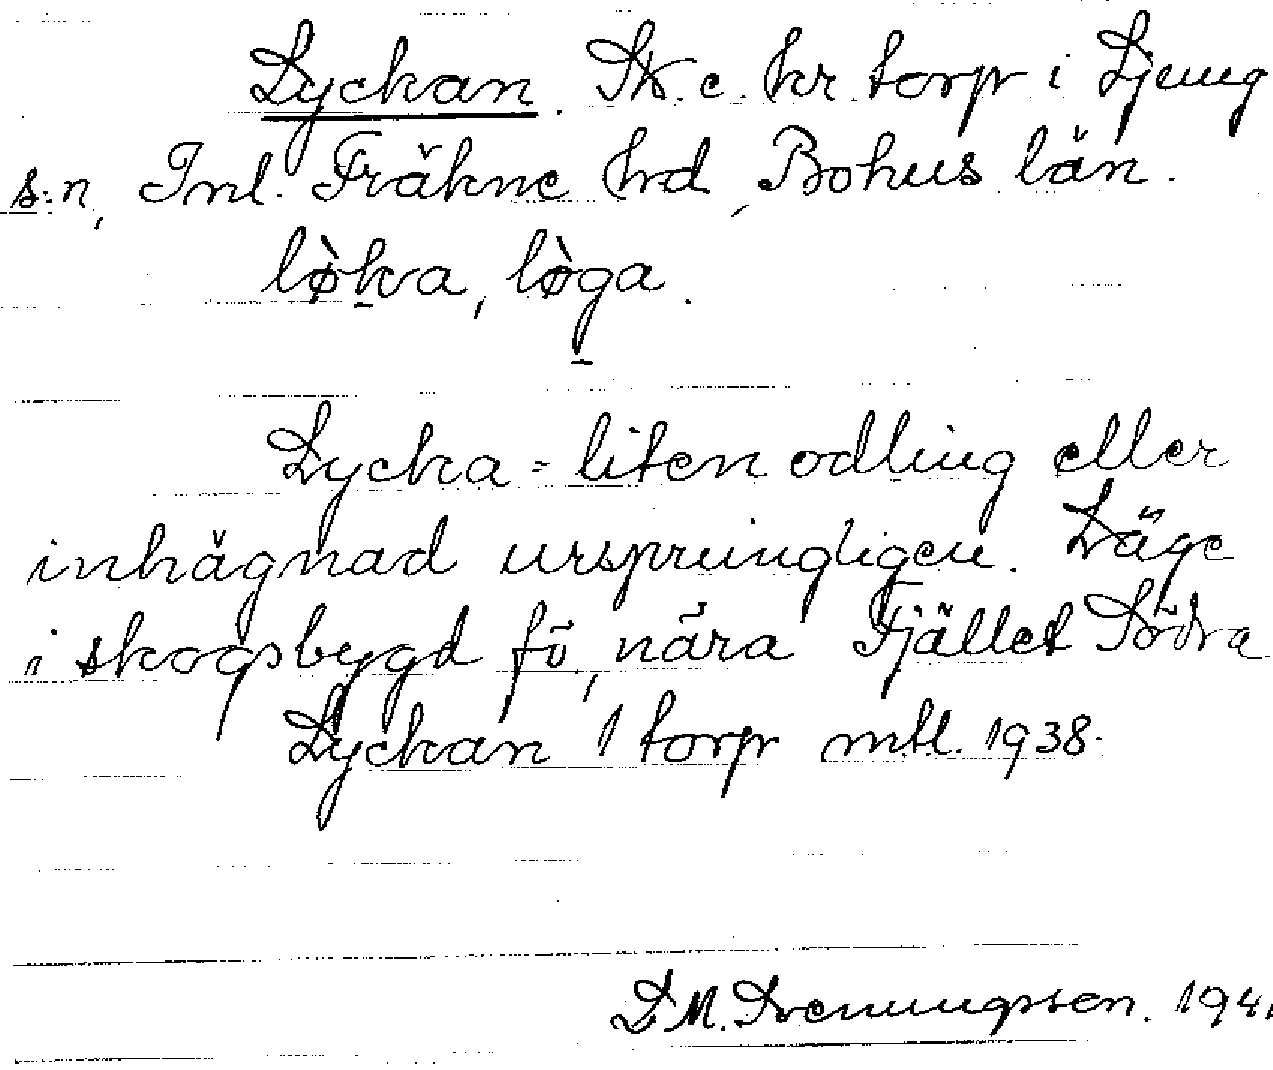 Lyckan. St. o. kr. torp i Ljung
s:n, Inl. Fräkne hd, Bohus län.
lø̀ka, lø̀ga.
Lycka = liten odling eller
inhägnad ursprungligen. Läge
i skogsbygd fö, nära Fjället Södra
Lyckan 1 torp mtl. 1938.
D. M. Svenungsson. 194